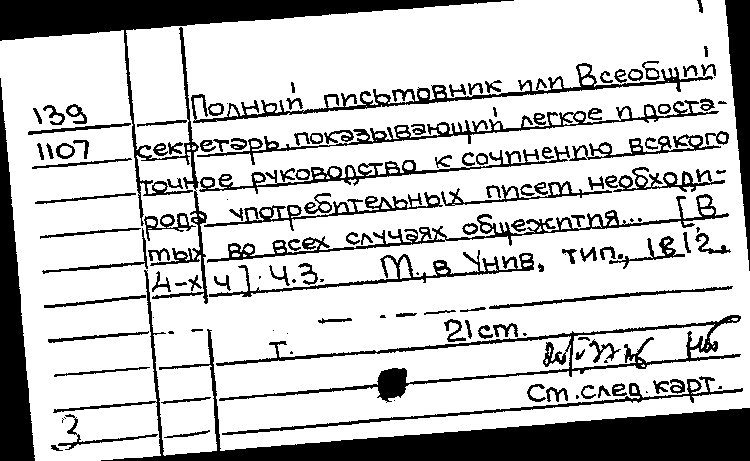 139 Полный письмовник или Всеобщий
1107 секретарь, показывающий легкое и доста-
точное руководство к сочинению всякого
рода употребительных писем, необходи-
мых во всех случаях общежития... [В
4-х ч]: Ч.3. М., в Унив. тип., 1812.
21 см.
т.
См. след. карт.
3